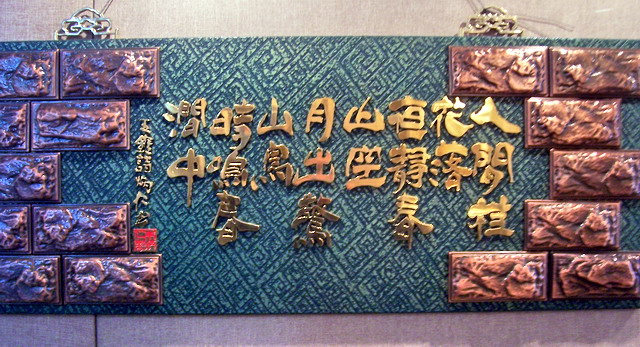 人閒桂
花落
亱靜春
山空
月出驚
山鳥
時鳴春
澗中
王維詩